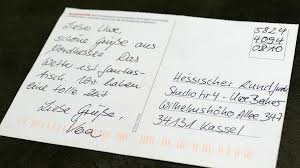 Liebe Uwe,
schöne Grüße aus
Nordhessen Das
Wetter ist fantas-
tisch Wir haben
eine tolle Zeit
Liebe Grüße,
5824
4094
0810
Hessischer Rundfunk
Studio hr4 - Uwe
Wilhelmshöher Allee 347
34131 Kassel